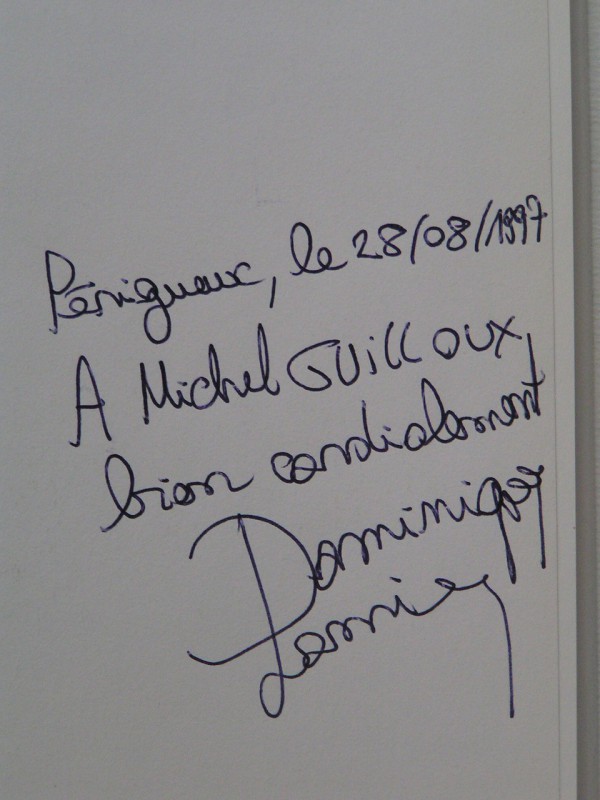 Périgueux, le 28/08/1997
A Michel GUILLOUX,
bien cordialement
Dominique